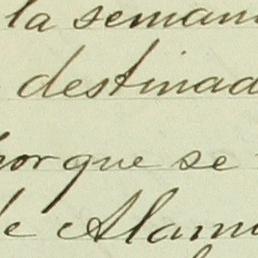 la seman
destinad
porque se
de Alam